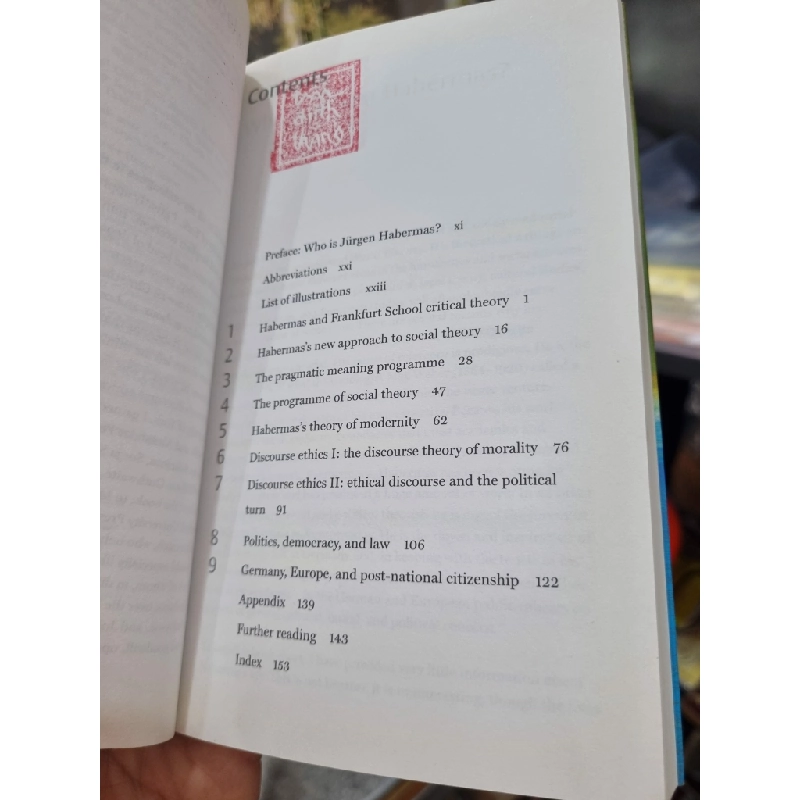 Contents
Preface: Who is Jürgen Habermas? xi
Abbreviations xxi
List of illustrations xxiii
1 Habermas and Frankfurt School critical theory 1
2 Habermas's new approach to social theory 16
3 The pragmatic meaning programme 28
4 The programme of social theory 47
5 Habermas's theory of modernity 62
6 Discourse ethics I: the discourse theory of morality 76
7 Discourse ethics II: ethical discourse and the political
turn 91
8 Politics, democracy, and law 106
9 Germany, Europe, and post-national citizenship 122
Appendix 139
Further reading 143
Index 153